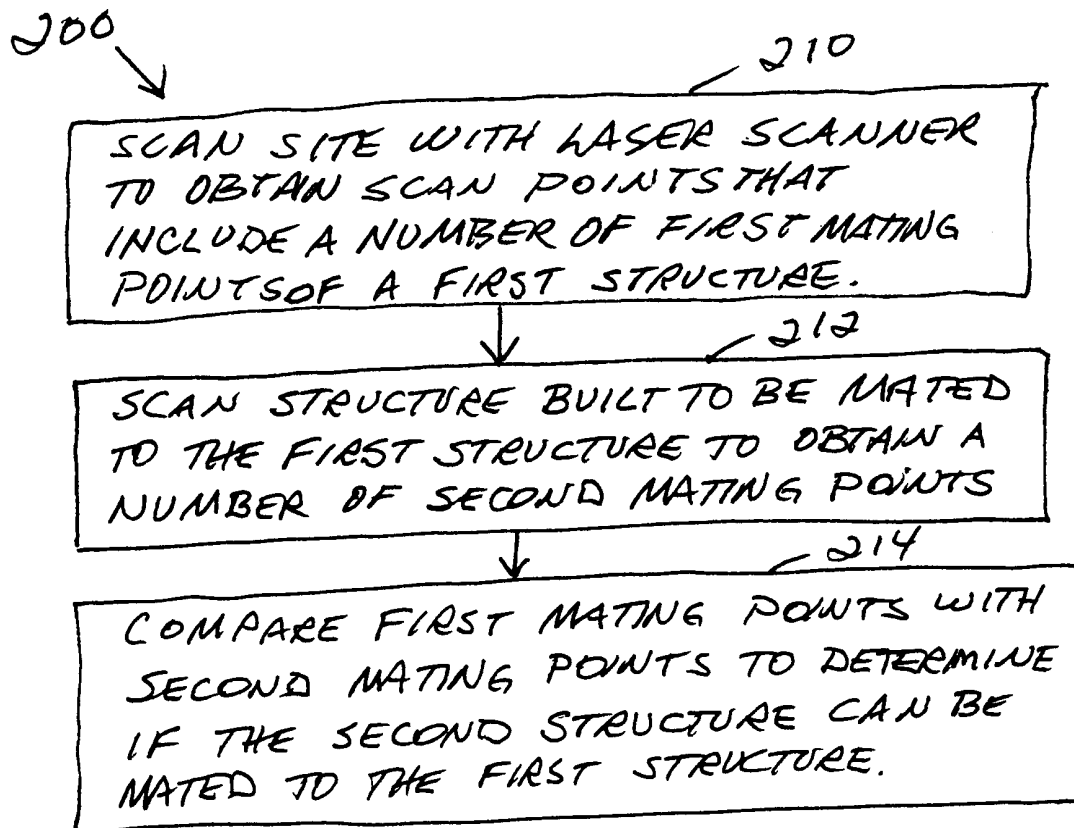 200
210
SCAN SITE WITH LASER SCANNER
TO OBTAIN SCAN POINTS THAT
INCLUDE A NUMBER OF FIRST MATING
POINTS OF A FIRST STRUCTURE.
212
SCAN STRUCTURE BUILT TO BE MATED
TO THE FIRST STRUCTURE TO OBTAIN A
NUMBER OF SECOND MATING POINTS
214
COMPARE FIRST MATING POINTS WITH
SECOND MATING POINTS TO DETERMINE
IF THE SECOND STRUCTURE CAN BE
MATED TO THE FIRST STRUCTURE.